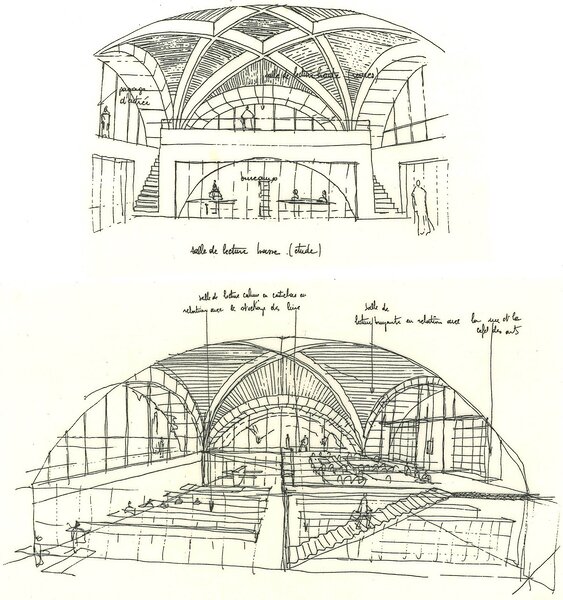 salle de lecture haute (revues)
passage
d'entrée
bureaux
salle de lecture basse. (étude)
salle de lecture calme en contrebas en
relation avec le stockage des livres
salle de
lecture bruyante en relation avec la rue et le
café des arts